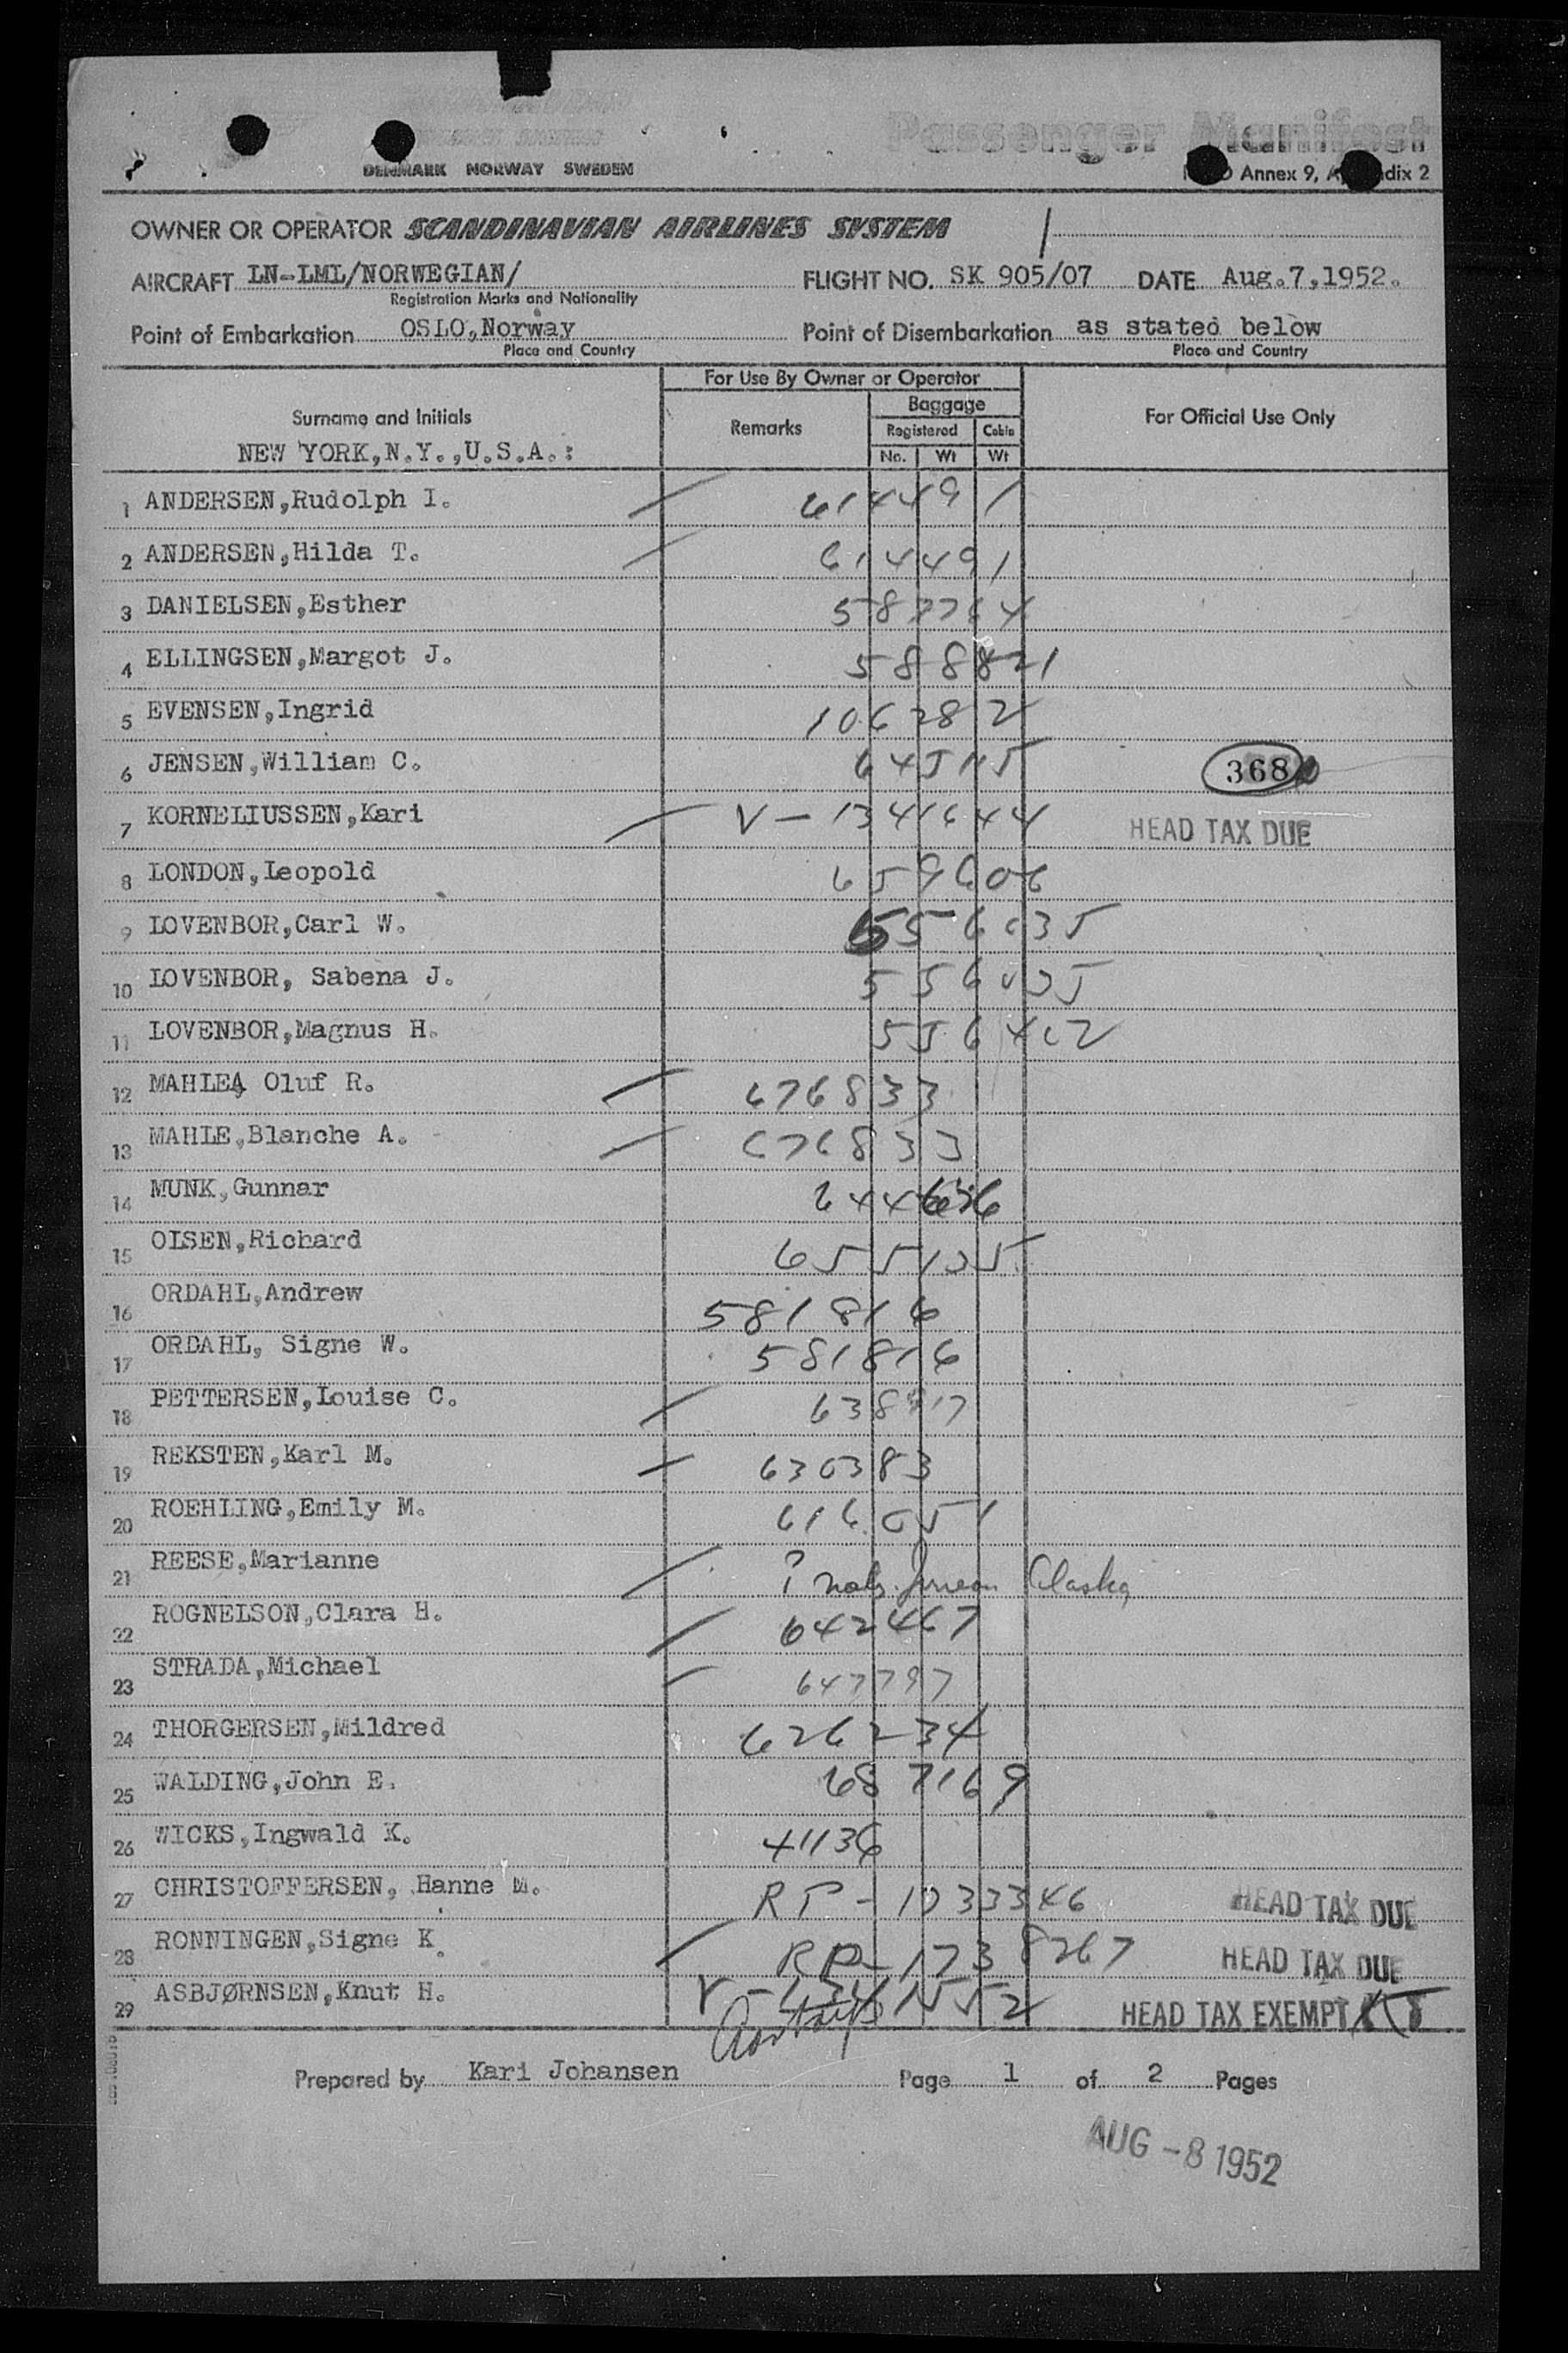 Passenger Manifest
DENMARK NORWAY SWEDEN
Annex 9, Appendix 2
OWNER OR OPERATOR SCANDINAVIAN AIRLINES SYSTEM
AIRCRAFT LN-LML/NORWEGIAN/ FLIGHT NO. SK 905/07 DATE Aug.7,1952.
Registration Marks and Nationality
Point of Embarkation OSLO,Norway Point of Disembarkation as stated below
Place and Country Place and Country
For Use By Owner or Operator
Surname and Initials Remarks Baggage For Official Use Only
Registered Cabin
NEW YORK,N.Y.,U.S.A.: No. Wt Wt
1 ANDERSEN,Rudolph I. 614491
2 ANDERSEN,Hilda T. 614491
3 DANIELSEN,Esther
4 ELLINGSEN,Margot J. 588821
5 EVENSEN,Ingrid 106282
6 JENSEN,William C. 368
7 KORNELIUSSEN,Kari V-1341644 HEAD TAX DUE
8 LONDON,Leopold 659606
9 LOVENBOR,Carl W. 556035
10 LOVENBOR, Sabena J. 556035
11 LOVENBOR,Magnus H. 556402
12 MAHLE, Oluf R. 676833
13 MAHLE,Blanche A. 676833
14 MUNK,Gunnar
15 OLSEN,Richard 655135
16 ORDAHL,Andrew 581816
17 ORDAHL, Signe W. 581816
18 PETTERSEN,Louise C.
19 REKSTEN,Karl M. 630383
20 ROEHLING,Emily M. 616051
21 REESE,Marianne Juneau Alaska
22 ROGNELSON,Clara H. 642467
23 STRADA,Michael 647797
24 THORGERSEN,Mildred 626234
25 WALDING,John E. 687169
26 WICKS,Ingwald K. 41136
27 CHRISTOFFERSEN, Hanne M. RP-1033346 HEAD TAX DUE
28 RONNINGEN,Signe K. RP-1738267 HEAD TAX DUE
29 ASBJØRNSEN,Knut H. V-1341552 HEAD TAX EXEMPT
Prepared by Kari Johansen Page 1 of 2 Pages
AUG -8 1952